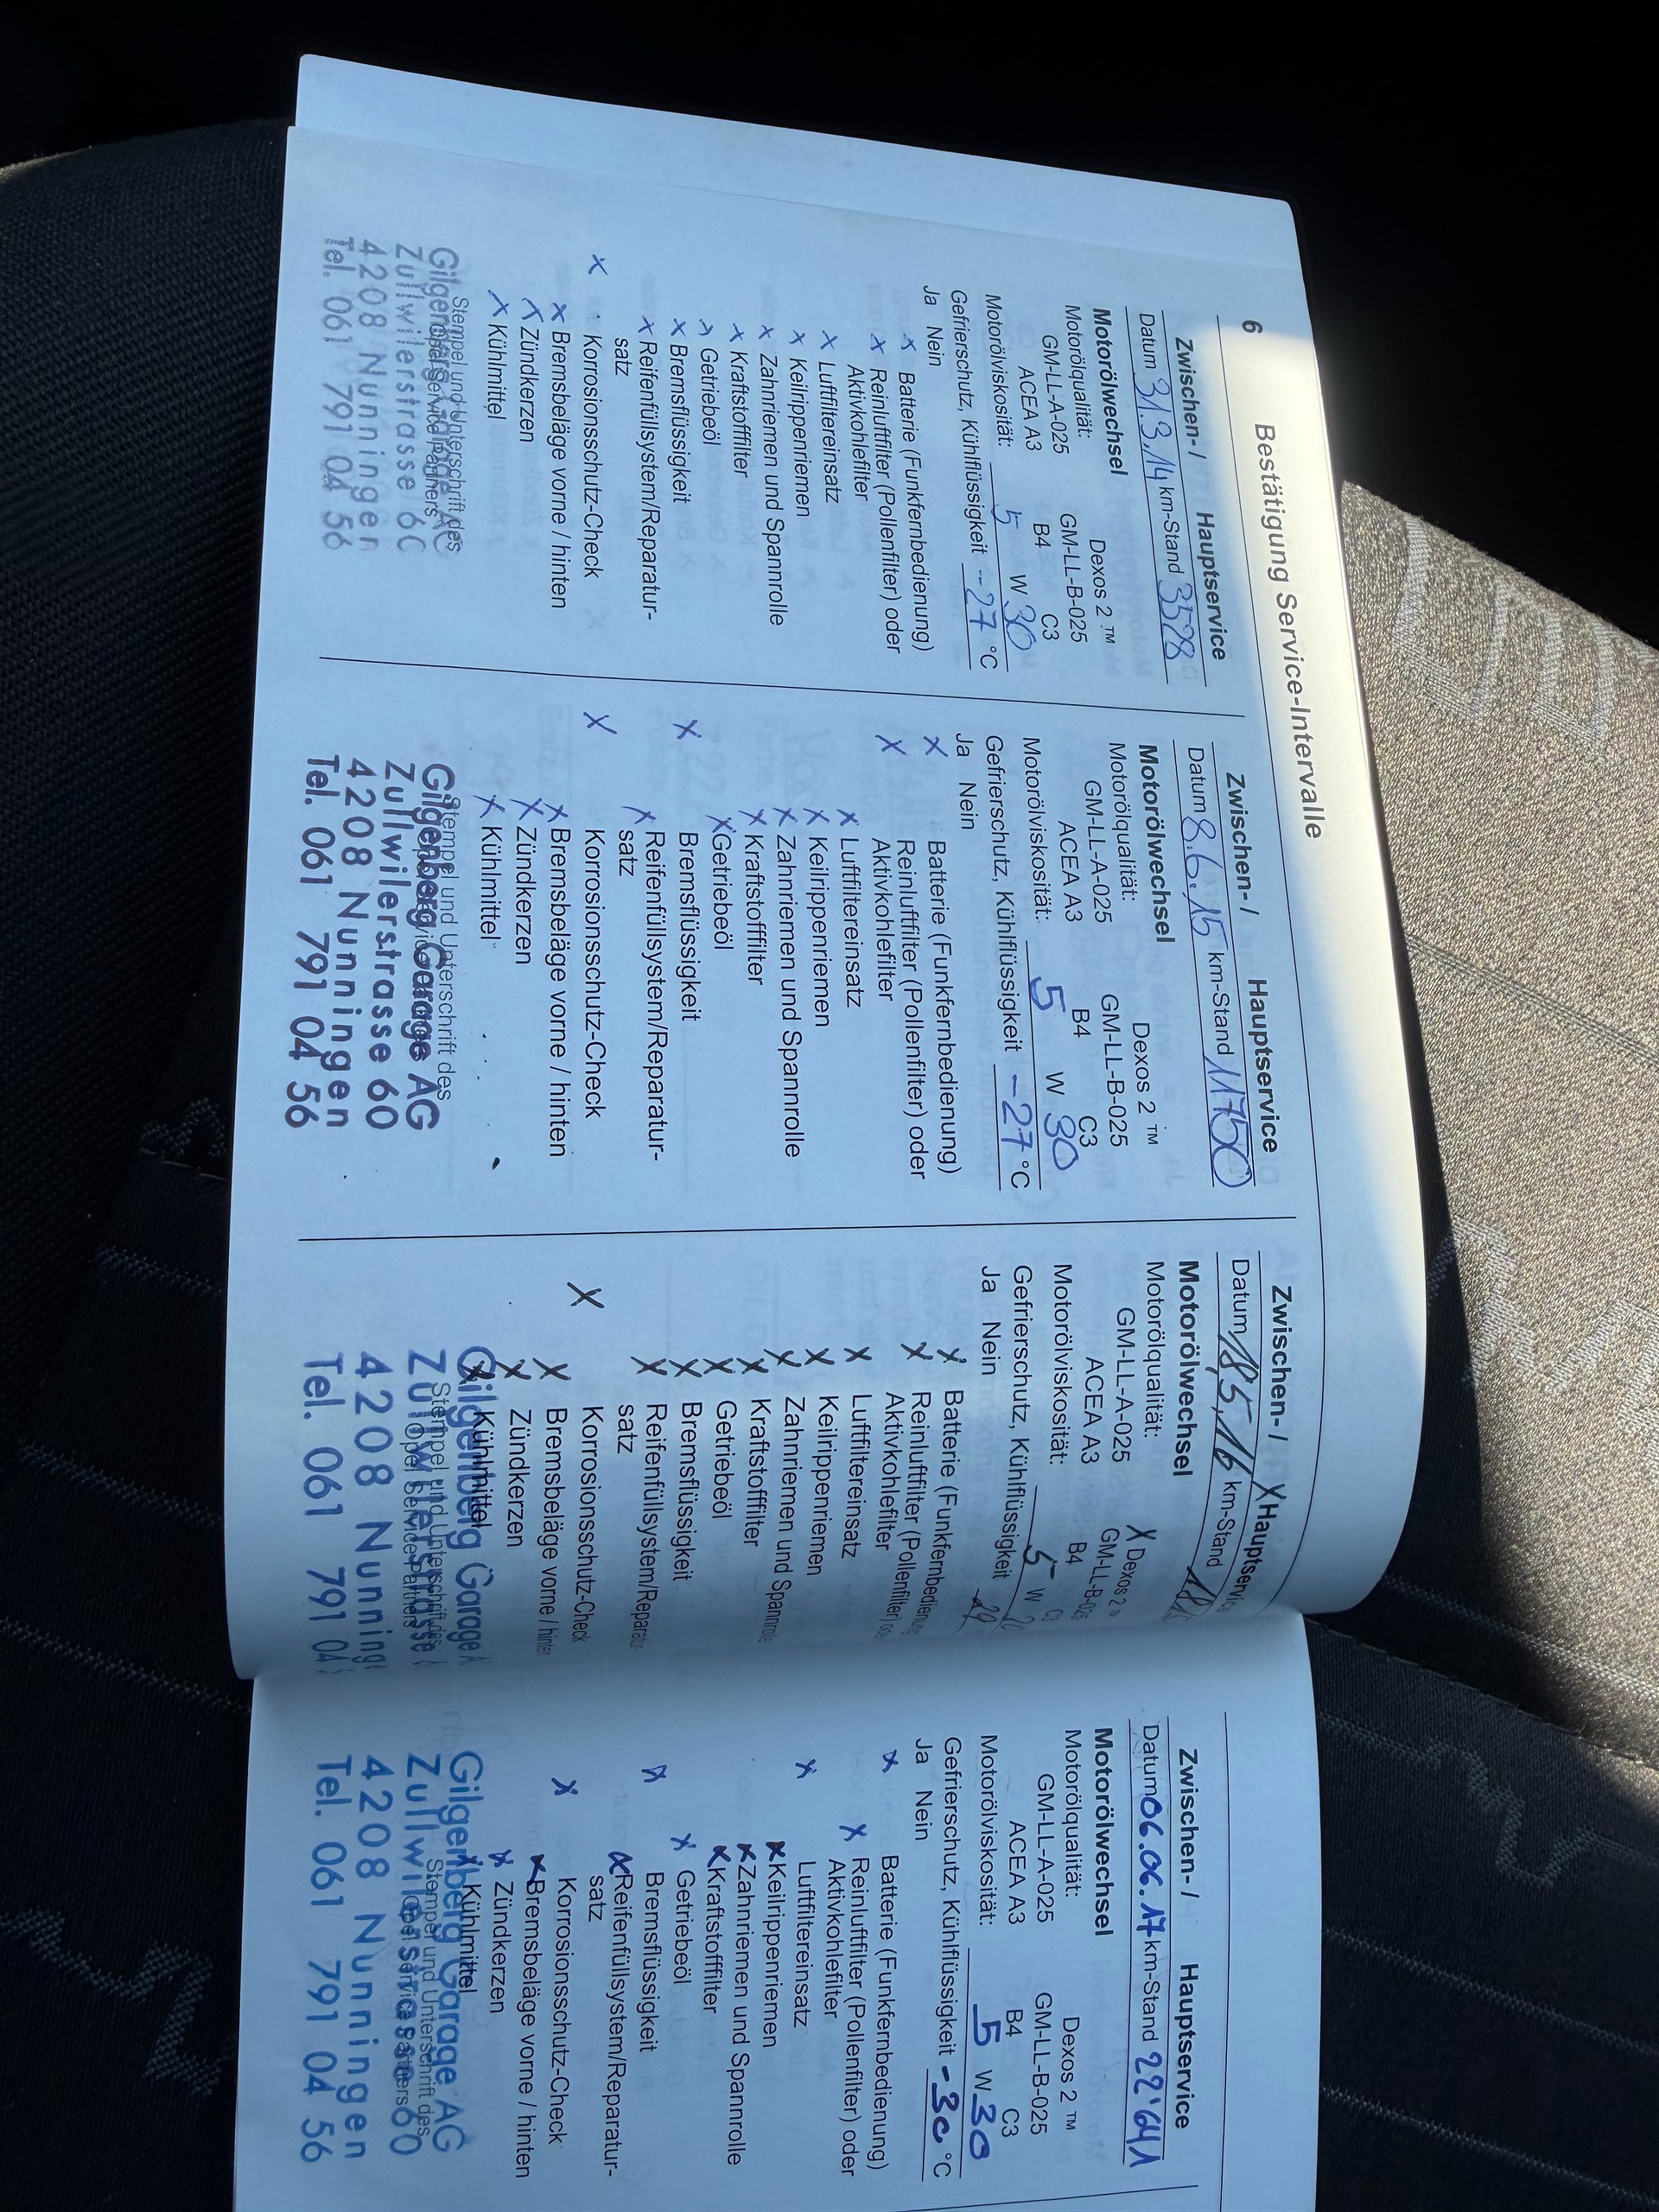 6 Bestätigung Service-Intervalle
Zwischen- / Hauptservice
Datum 31.3.14 km-Stand 3528
Motorölwechsel
Motorölqualität: Dexos 2 ™
GM-LL-A-025 GM-LL-B-025
ACEA A3 B4 C3
Motorölviskosität: 5 W 30
Gefrierschutz, Kühlflüssigkeit -27 °C
Ja Nein
x Batterie (Funkfernbedienung)
x Reinluftfilter (Pollenfilter) oder
Aktivkohlefilter
x Luftfiltereinsatz
x Keilrippenriemen
x Zahnriemen und Spannrolle
x Kraftstofffilter
x Getriebeöl
x Bremsflüssigkeit
x Reifenfüllsystem/Reparatur-
satz
x Korrosionsschutz-Check
x Bremsbeläge vorne / hinten
x Zündkerzen
x Kühlmittel
Stempel und Unterschrift des
Opel Service Partners
Gilgenberg Garage AG
Zullwilerstrasse 60
4208 Nunningen
Tel. 061 791 04 56
Zwischen- / Hauptservice
Datum 8.6.15 km-Stand 11750
Motorölwechsel
Motorölqualität: Dexos 2 ™
GM-LL-A-025 GM-LL-B-025
ACEA A3 B4 C3
Motorölviskosität: 5 W 30
Gefrierschutz, Kühlflüssigkeit -27 °C
Ja Nein
x Batterie (Funkfernbedienung)
x Reinluftfilter (Pollenfilter) oder
Aktivkohlefilter
x Luftfiltereinsatz
x Keilrippenriemen
x Zahnriemen und Spannrolle
x Kraftstofffilter
x Getriebeöl
x Bremsflüssigkeit
x Reifenfüllsystem/Reparatur-
satz
x Korrosionsschutz-Check
x Bremsbeläge vorne / hinten
x Zündkerzen
x Kühlmittel
Stempel und Unterschrift des
Gilgenberg Garage AG
Zullwilerstrasse 60
4208 Nunningen
Tel. 061 791 04 56
Zwischen- / X Hauptservic
Datum 18,5,16 km-Stand
Motorölwechsel
Motorölqualität: X Dexos 2
GM-LL-A-025 GM-LL-B-02
ACEA A3 B4 C3
Motorölviskosität: 5 W
Gefrierschutz, Kühlflüssigkeit
Ja Nein
x Batterie (Funkfernbedienung
x Reinluftfilter (Pollenfilter) od
Aktivkohlefilter
x Luftfiltereinsatz
x Keilrippenriemen
x Zahnriemen und Spannrolle
x Kraftstofffilter
x Getriebeöl
x Bremsflüssigkeit
x Reifenfüllsystem/Reparatur
satz
x Korrosionsschutz-Check
x Bremsbeläge vorne / hinte
x Zündkerzen
x Kühlmittel
Stempel und Unterschrift des
Opel Service Partners
Gilgenberg Garage A
Zullwilerstrasse 6
4208 Nunning
Tel. 061 791 04
Zwischen- / Hauptservice
Datum 06.06.17 km-Stand 22'641
Motorölwechsel
Motorölqualität: Dexos 2 ™
GM-LL-A-025 GM-LL-B-025
ACEA A3 B4 C3
Motorölviskosität: 5 W 30
Gefrierschutz, Kühlflüssigkeit -30 °C
Ja Nein
x Batterie (Funkfernbedienung)
x Reinluftfilter (Pollenfilter) oder
Aktivkohlefilter
x Luftfiltereinsatz
x Keilrippenriemen
x Zahnriemen und Spannrolle
x Kraftstofffilter
x Getriebeöl
x Bremsflüssigkeit
x Reifenfüllsystem/Reparatur-
satz
x Korrosionsschutz-Check
x Bremsbeläge vorne / hinten
x Zündkerzen
x Kühlmittel
Stempel und Unterschrift des
Opel Service Partners
Gilgenberg Garage AG
Zullwilerstrasse 60
4208 Nunningen
Tel. 061 791 04 56